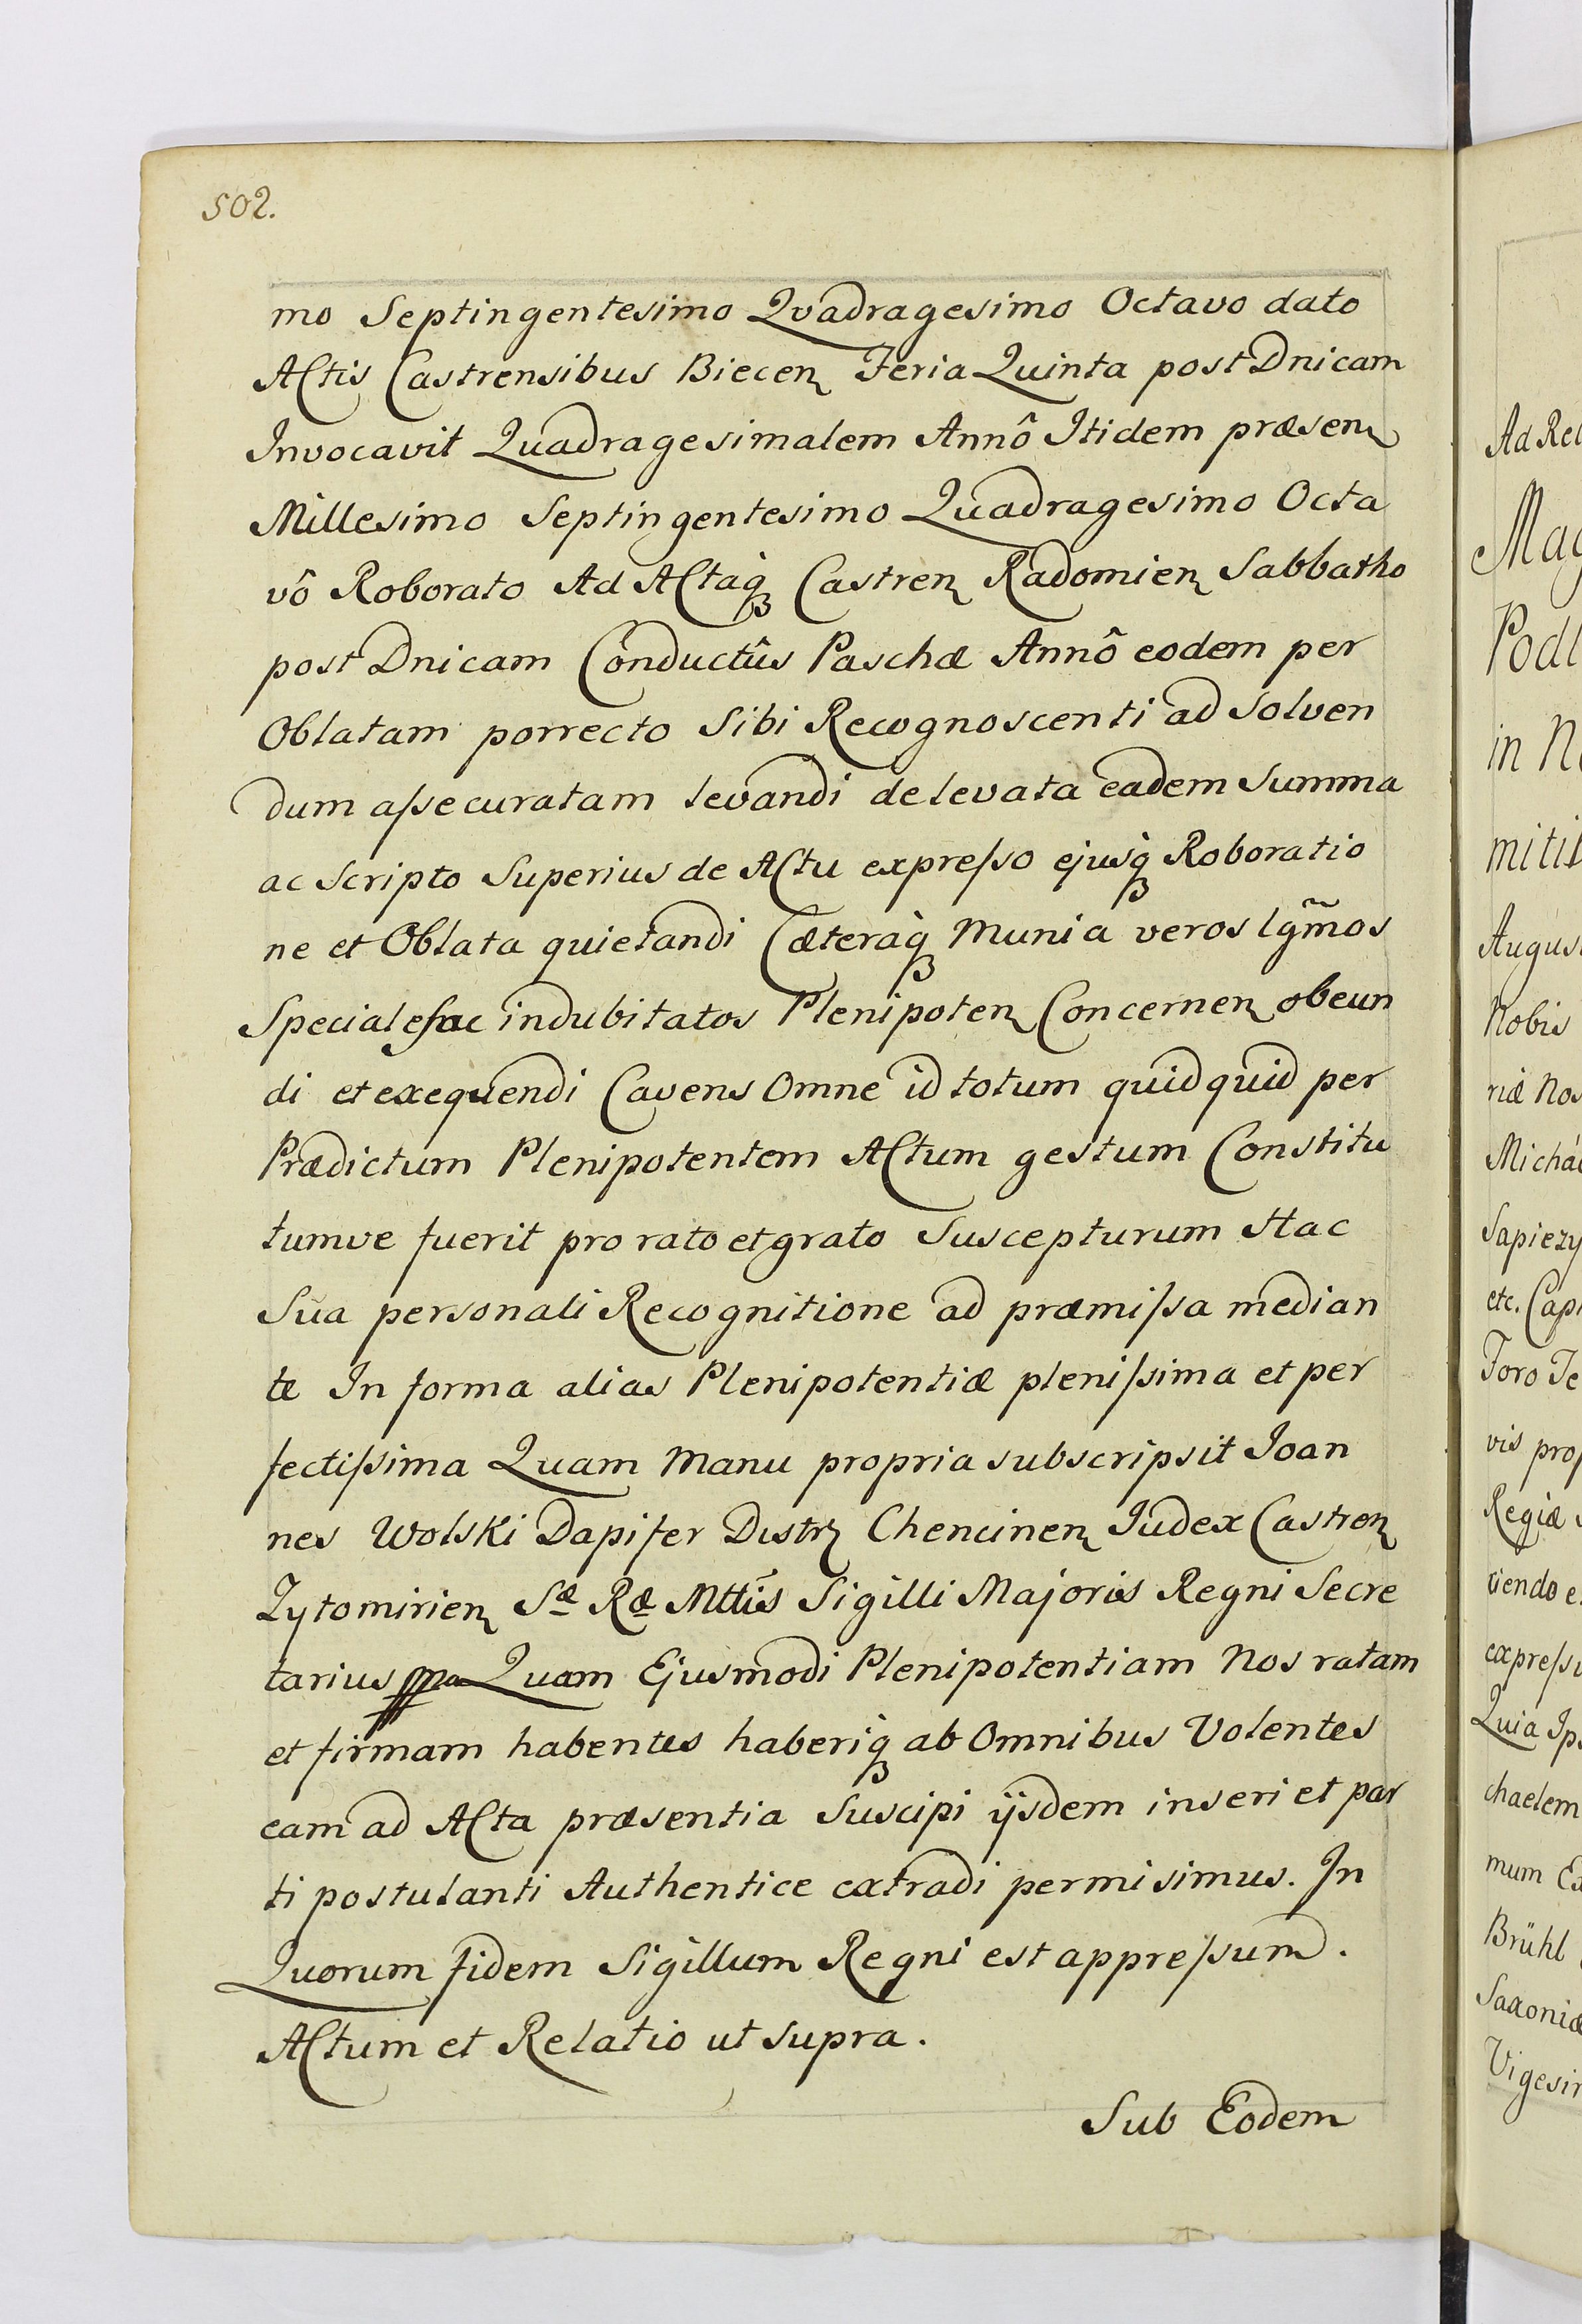 502.
mo Septingentesimo Qvadragesimo Octavo dato
Actis Castrensibus Biecen Feria Quinta post Dnicam
Invocavit Quadragesimalem Annô Itidem præsen
Millesimo Septingentesimo Quadragesimo Octa
vô Roborato Ad Actaq̀ꝫ Castren Radomien Sabbatho
post Dnicam Conductûs Paschæ Annô eodem per
Oblatam porrecto Sibi Recognoscenti ad Solven
dum assecuratam levandi de levata eadem Summa
ac Scripto Superius de Actu expresso ejusq̀ꝫ Roboratio
ne et Oblata quietandi Cæteraq̀ꝫ Munia veros lgm̃os
Speciales ac indubitatos Plenipoten Concernen obeun
di et exequendi Cavens Omne id totum quidquid per
Prædictum Plenipotentem Actum gestum Constitu
tumve fuerit pro rato et grato Suscepturum Hac
Sua personali Recognitione ad præmissa median
te In forma alias Plenipotentiæ plenissima et per
fectissima Quam Manu propria subscripsit Joan
nes Wolski Dapifer Distr Chencinen Judex Castren
Zytomirien Sæ Ræ Mttis Sigilli Majoris Regni Secre
tarius mp Quam Ejusmodi Plenipotentiam Nos ratam
et firmam habentes haberiq̀ꝫ ab Omnibus Volentes
eam ad Acta præsentia Suscipi ijsdem inseri et par
ti postulanti Authentice extradi permisimus. In
Quorum fidem Sigillum Regni est appressum.
Actum et Relatio ut supra.
Sub Eodem
Ad Rel
Mag
Podl
in N
mitis
Augus
Nobis
riæ Nos
Michaë
Sapiezy
etc. Cap
Foro Te
vis prop
Regiæ
tiendo e
expressi
Quia Ips
chaelem
mum Ex
Brühl
Saxoniæ
Vigesim